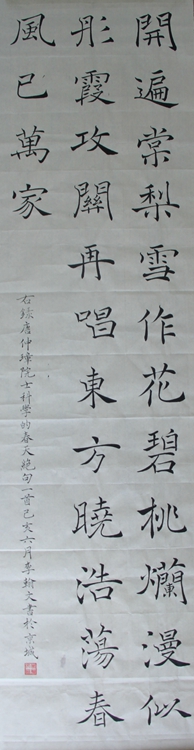 開遍棠梨雪作花碧桃爛漫似
彤霞攻關再唱東方曉浩蕩春
風已萬家
右錄唐仲璋院士科學的春天絕句一首己亥六月李瑜文書於京城